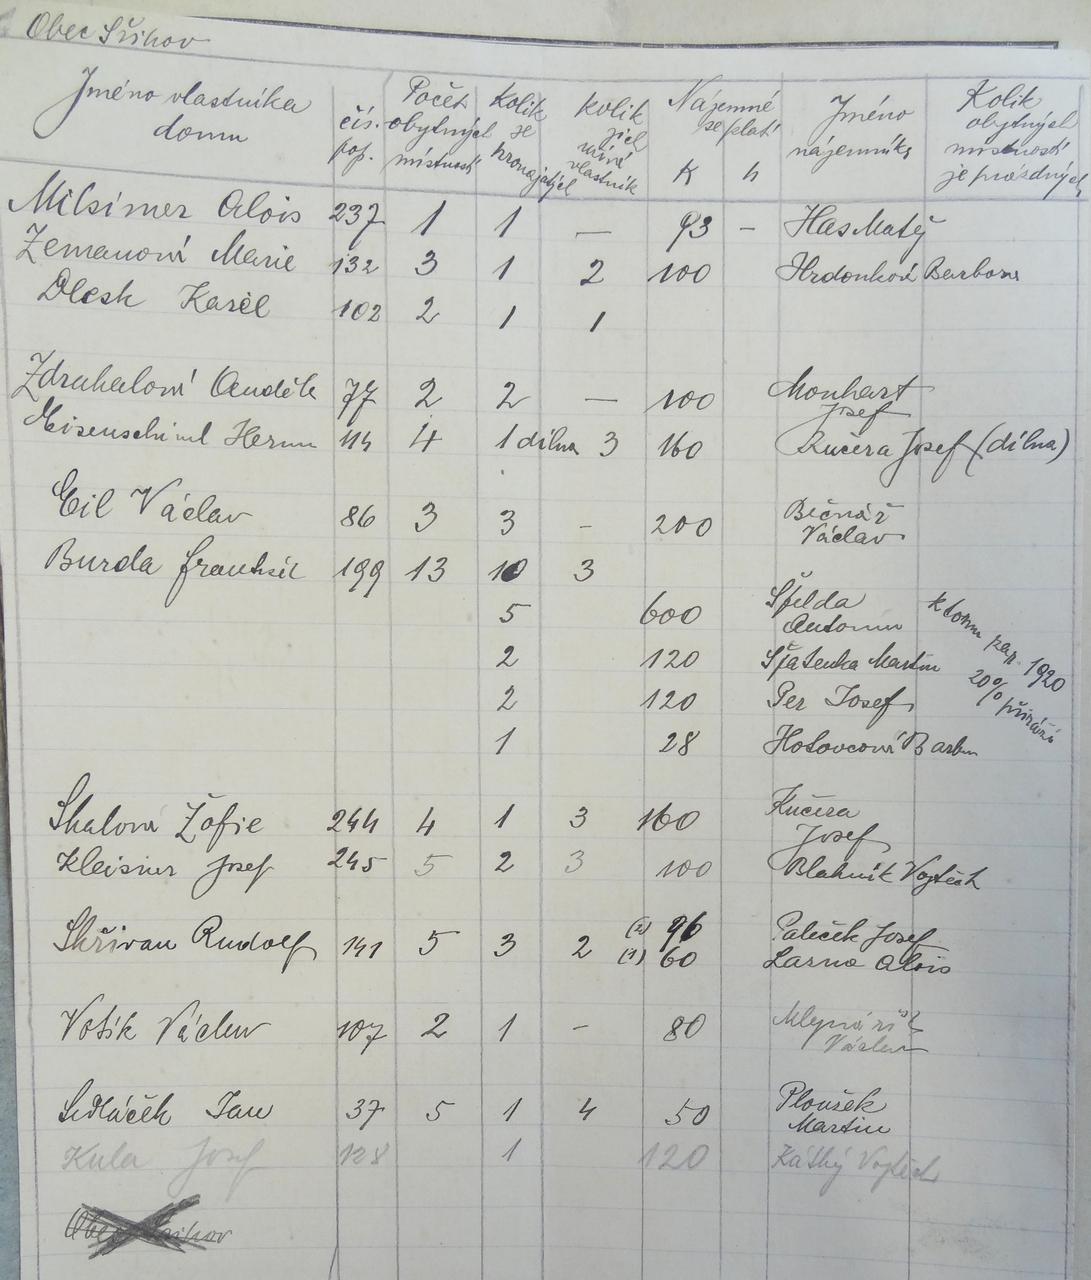 Obec Sřihov
Jméno vlastníka domu čís. pop. Počet obytných místností Kolik se pronajatých kolik jich užívá vlastník Nájemné se platí K h Jméno nájemníka Kolik obytných místností je prázdných
Milsimer Alois 237 1 1 — 93 - Has Matěj
Zemanová Marie 132 3 1 2 100 Hrdonková Barbora
Dlesk Karel 102 2 1 1
Zdruhalová Anděla 77 2 2 — 100 Monhart
Josef
Eisenschiml Herm 114 4 1 dílna 3 160 Kučera Josef (dílna)
Cil Václav 86 3 3 - 200 Bečnář
Václav
Burda František 199 13 10 3
5 600 Špelda
Antonín
2 120 Martin
2 120 Per Josef
1 28 Hotovcová Barbora
k tomu 1920
20%
Skalová Žofie 244 4 1 3 160 Kučera
Josef
Kleisner Josef 245 5 2 3 100 Blahník Vojtěch
Skřivan Rudolf 141 5 3 2 (2) 96 Paleček Josef
(1) 60 Alois
Votík Václav 107 2 1 - 80 Mlynařík
Václav
Sedláček Jan 37 5 1 4 50 Ploušek
Martin
Kula Josef 128 1 120 Vojtěch